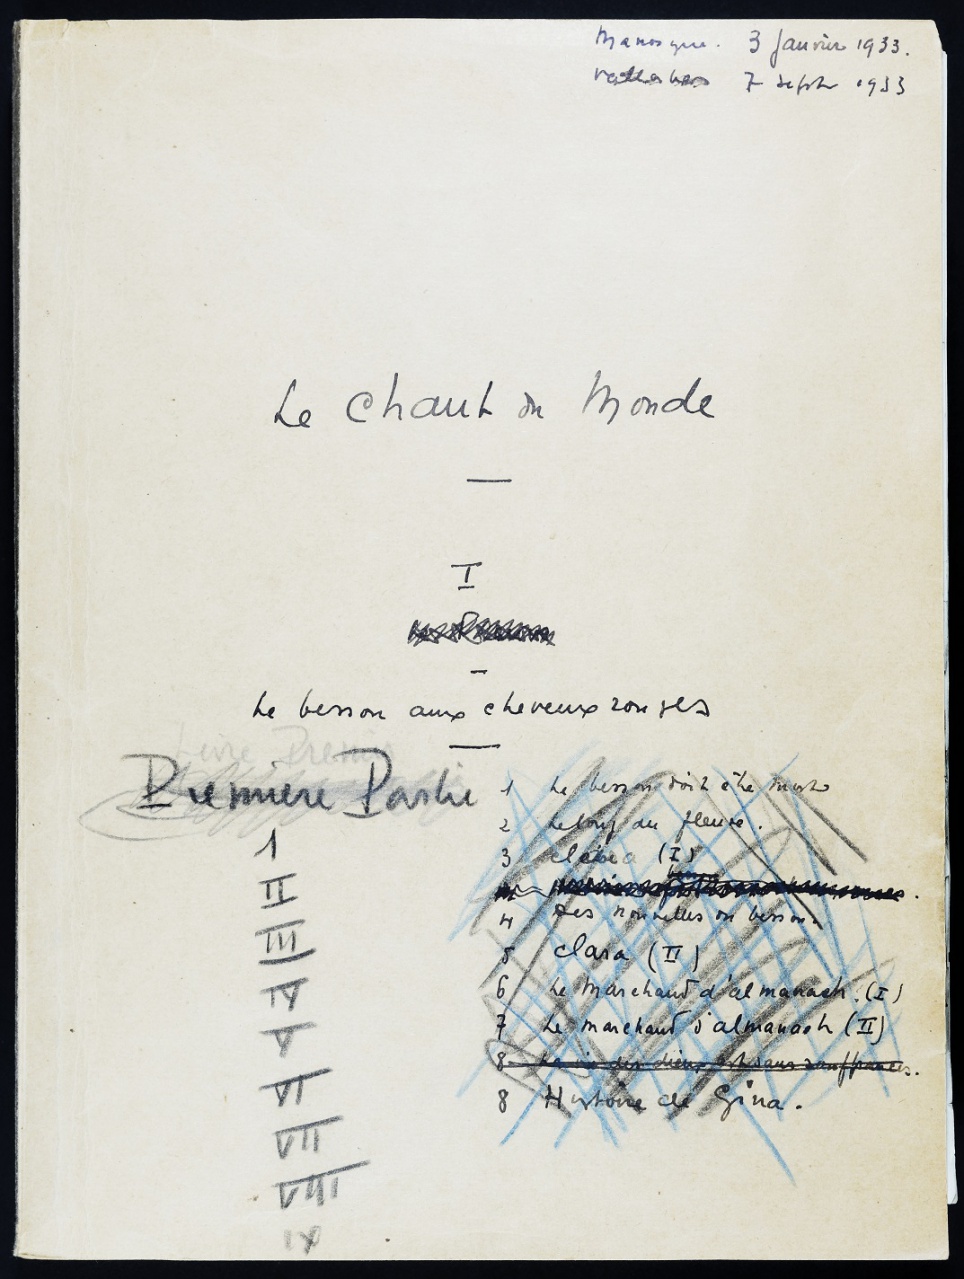 Manosque. 3 Janvier 1933.
7 Septbr 1933
Le Chant du Monde
I
Le besson aux cheveux rouges
Livre Premier
Première Partie
I
II
III
IV
V
VI
VII
VIII
IX
1 Le besson doit être mort
2 Le long du fleuve.
3 Clara (I)
4 Des nouvelles du besson
5 Clara (II)
6 Le Marchand d'almanach. (I)
7 Le marchand d'almanach (II)
8 La vie des dieux est sans souffrances.
8 Histoire de Gina.